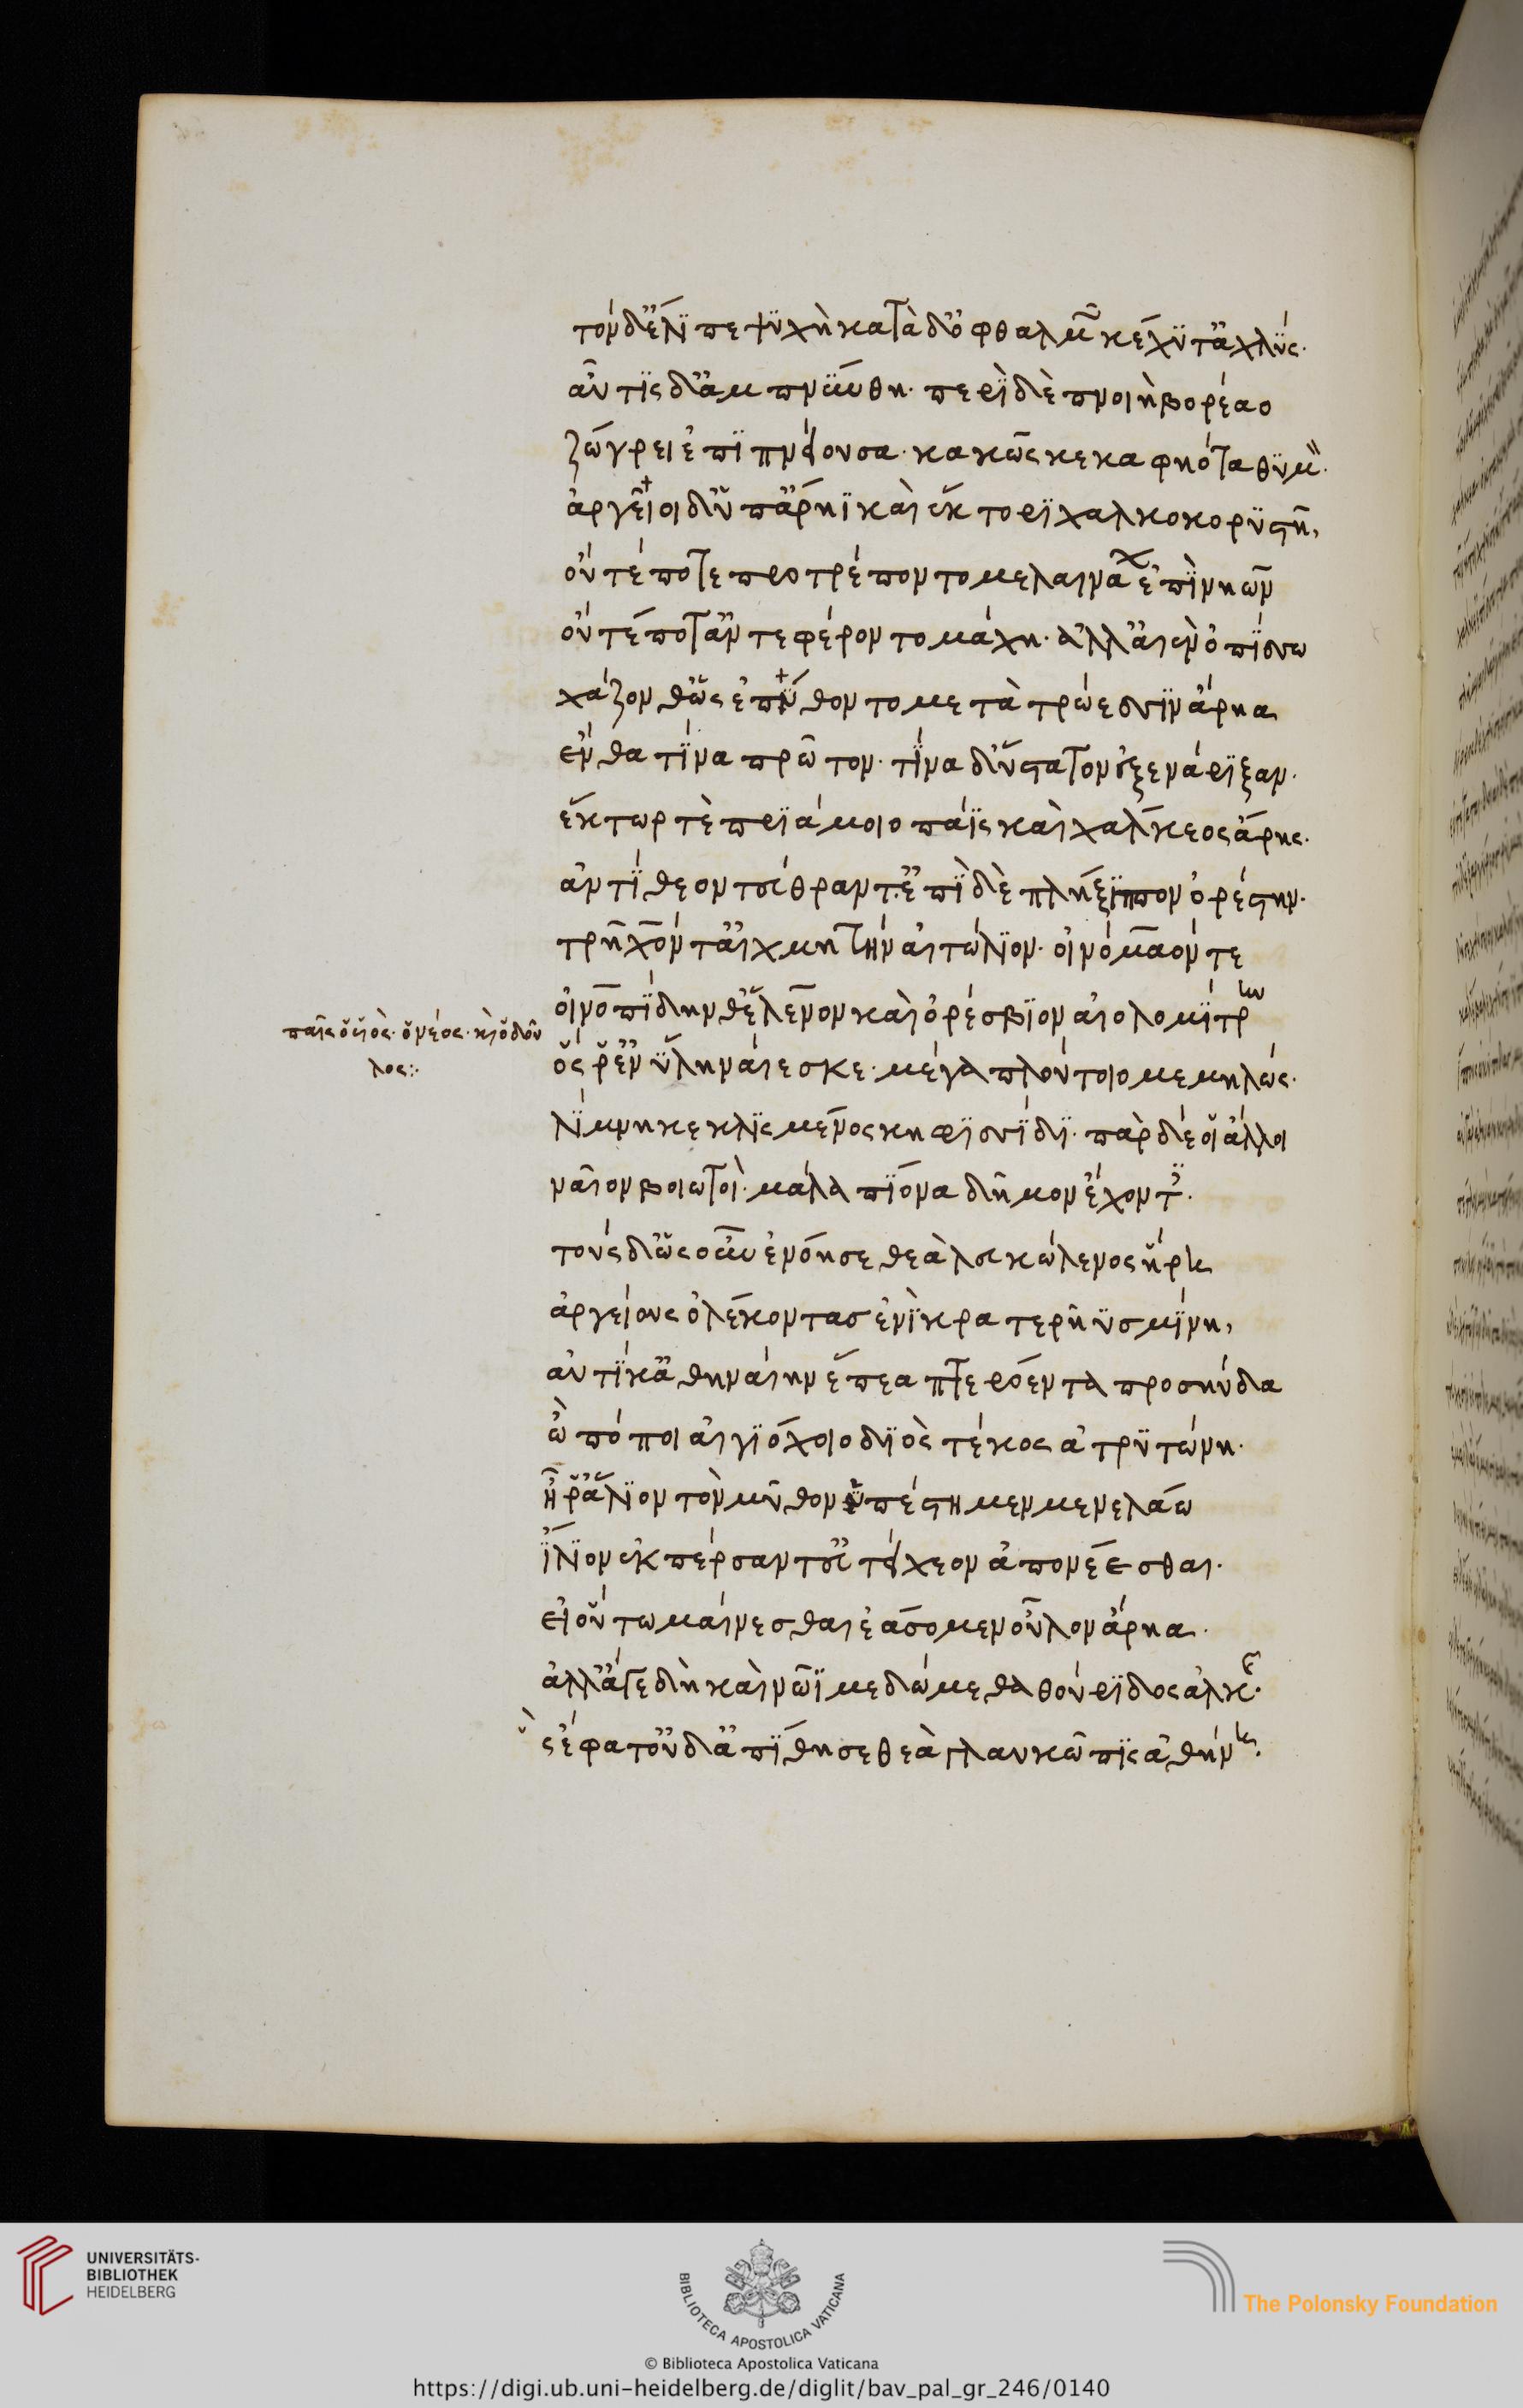 τὸν δ' ἔλιπε ψυχὴ κατὰ δ' ὀφθαλμῶν κέχυτ' ἀχλύς·
αὖτις δ' ἀμπνύνθη· περὶ δὲ πνοιὴ βορέαο
ζώγρει ἐπιπνείουσα· κακῶς κεκαφηότα θυμόν·
ἀργεῖοι δ' ὑπ' ἄρηϊ καὶ ἕκτορι χαλκοκορυστῇ,
οὔτέ ποτε προτρέποντο μελαινάων ἐπὶ νηῶν
οὔτέ ποτ' ἀντεφέροντο μάχῃ· ἀλλ' αἰὲν ὀπίσσω
χάζονθ' ὡς ἐπύθοντο μετὰ τρώεσσιν ἄρηα
ἔνθα τίνα πρῶτον· τίνα δ' ὕστατον ἐξενάριξαν·
ἕκτωρ τὲ πριάμοιο πάϊς καὶ χάλκεος ἄρης·
ἀντίθεον τεύθραντ'· ἐπὶ δὲ πλήξιππον ὀρέστην·
τρῆχόν τ' αἰχμητὴν αἰτώλιον· οἰνόμαόν τε
οἰνοπίδην θ' ἕλενον καὶ ὀρέσβιον αἰολομίτρην
παῖς ὁ υἱὸς· ὁ νέος· καὶ ὁ δοῦ
λος:·
ὅς ῥ' ἐν ὕλῃ ναίεσκε· μέγα πλούτοιο μεμηλώς·
λίμνῃ κεκλιμένος κηφισίδι· πὰρ δέ οἱ ἄλλοι
ναῖον βοιωτοὶ· μάλα πίονα δῆμον ἔχοντες·
τοὺς δ' ὡς οὖν ἐνόησε θεὰ λευκώλενος ἥρη
ἀργείους ὀλέκοντας ἐνὶ κρατερῇ ὑσμίνῃ,
αὐτίκ' ἀθηναίην ἔπεα πτερόεντα προσηύδα
ὢ πόποι αἰγιόχοιο διὸς τέκος ἀτρυτώνη·
ἦ ῥ' ἅλιον τὸν μῦθον ὑπέστημεν μενελάῳ
ἴλιον ἐκπέρσαντ' εὐτείχεον ἀπονέεσθαι·
εἰ οὕτω μαίνεσθαι ἐάσομεν οὖλον ἄρηα·
ἀλλ' ἄγε δὴ καὶ νῶϊ μεδώμεθα θούριδος ἀλκῆς·
ὣς ἔφατ' οὐδ' ἀπίθησε θεὰ γλαυκῶπις ἀθήνη·
UNIVERSITÄTS-
BIBLIOTHEK
HEIDELBERG
BIBLIOTECA APOSTOLICA VATICANA
The Polonsky Foundation
© Biblioteca Apostolica Vaticana
https://digi.ub.uni-heidelberg.de/diglit/bav_pal_gr_246/0140